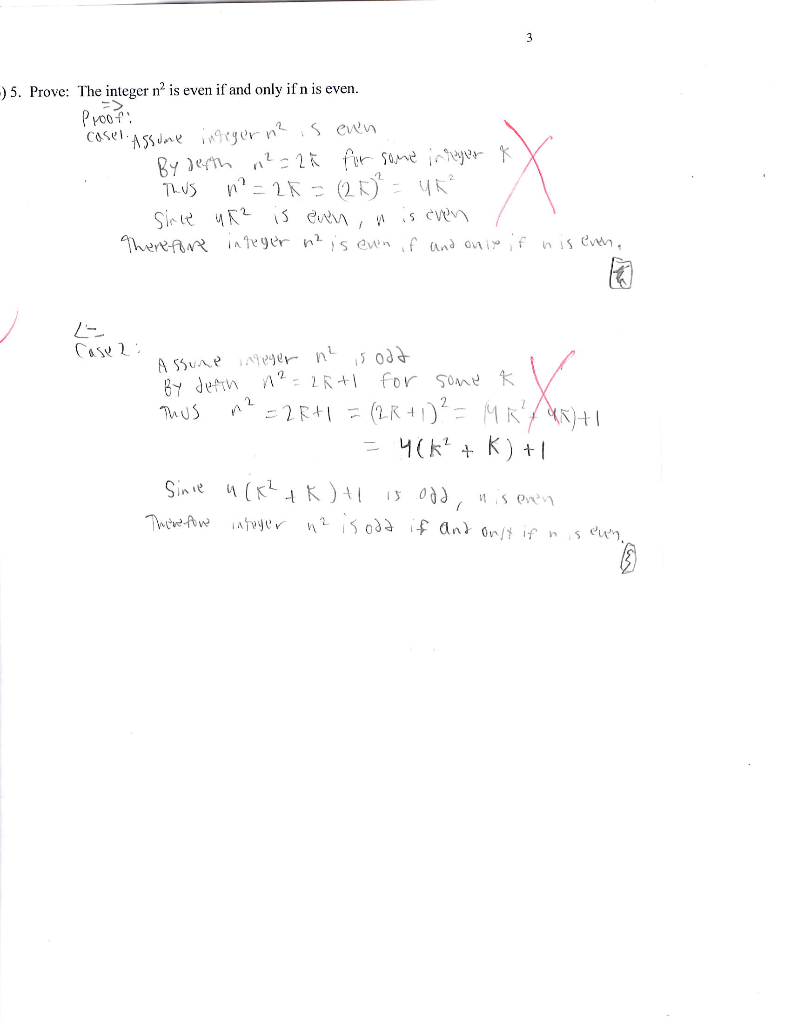 3
) 5. Prove: The integer n² is even if and only if n is even.
=>
Proof:
Case 1: Assume integer n² is even
By defin n² = 2K for some integer K
Thus n² = 2K = (2K)² = 4K²
Since 4K² is even, n is even
Therefore integer n² is even if and only if n is even.
<=
Case 2:
Assume integer n² is odd
By defin n² = 2K+1 for some K
Thus n² = 2K+1 = (2K+1)² = (4K²+4K)+1
= 4(K² + K) +1
Since 4(K² + K)+1 is odd, n is even
Therefore integer n² is odd if and only if n is even.